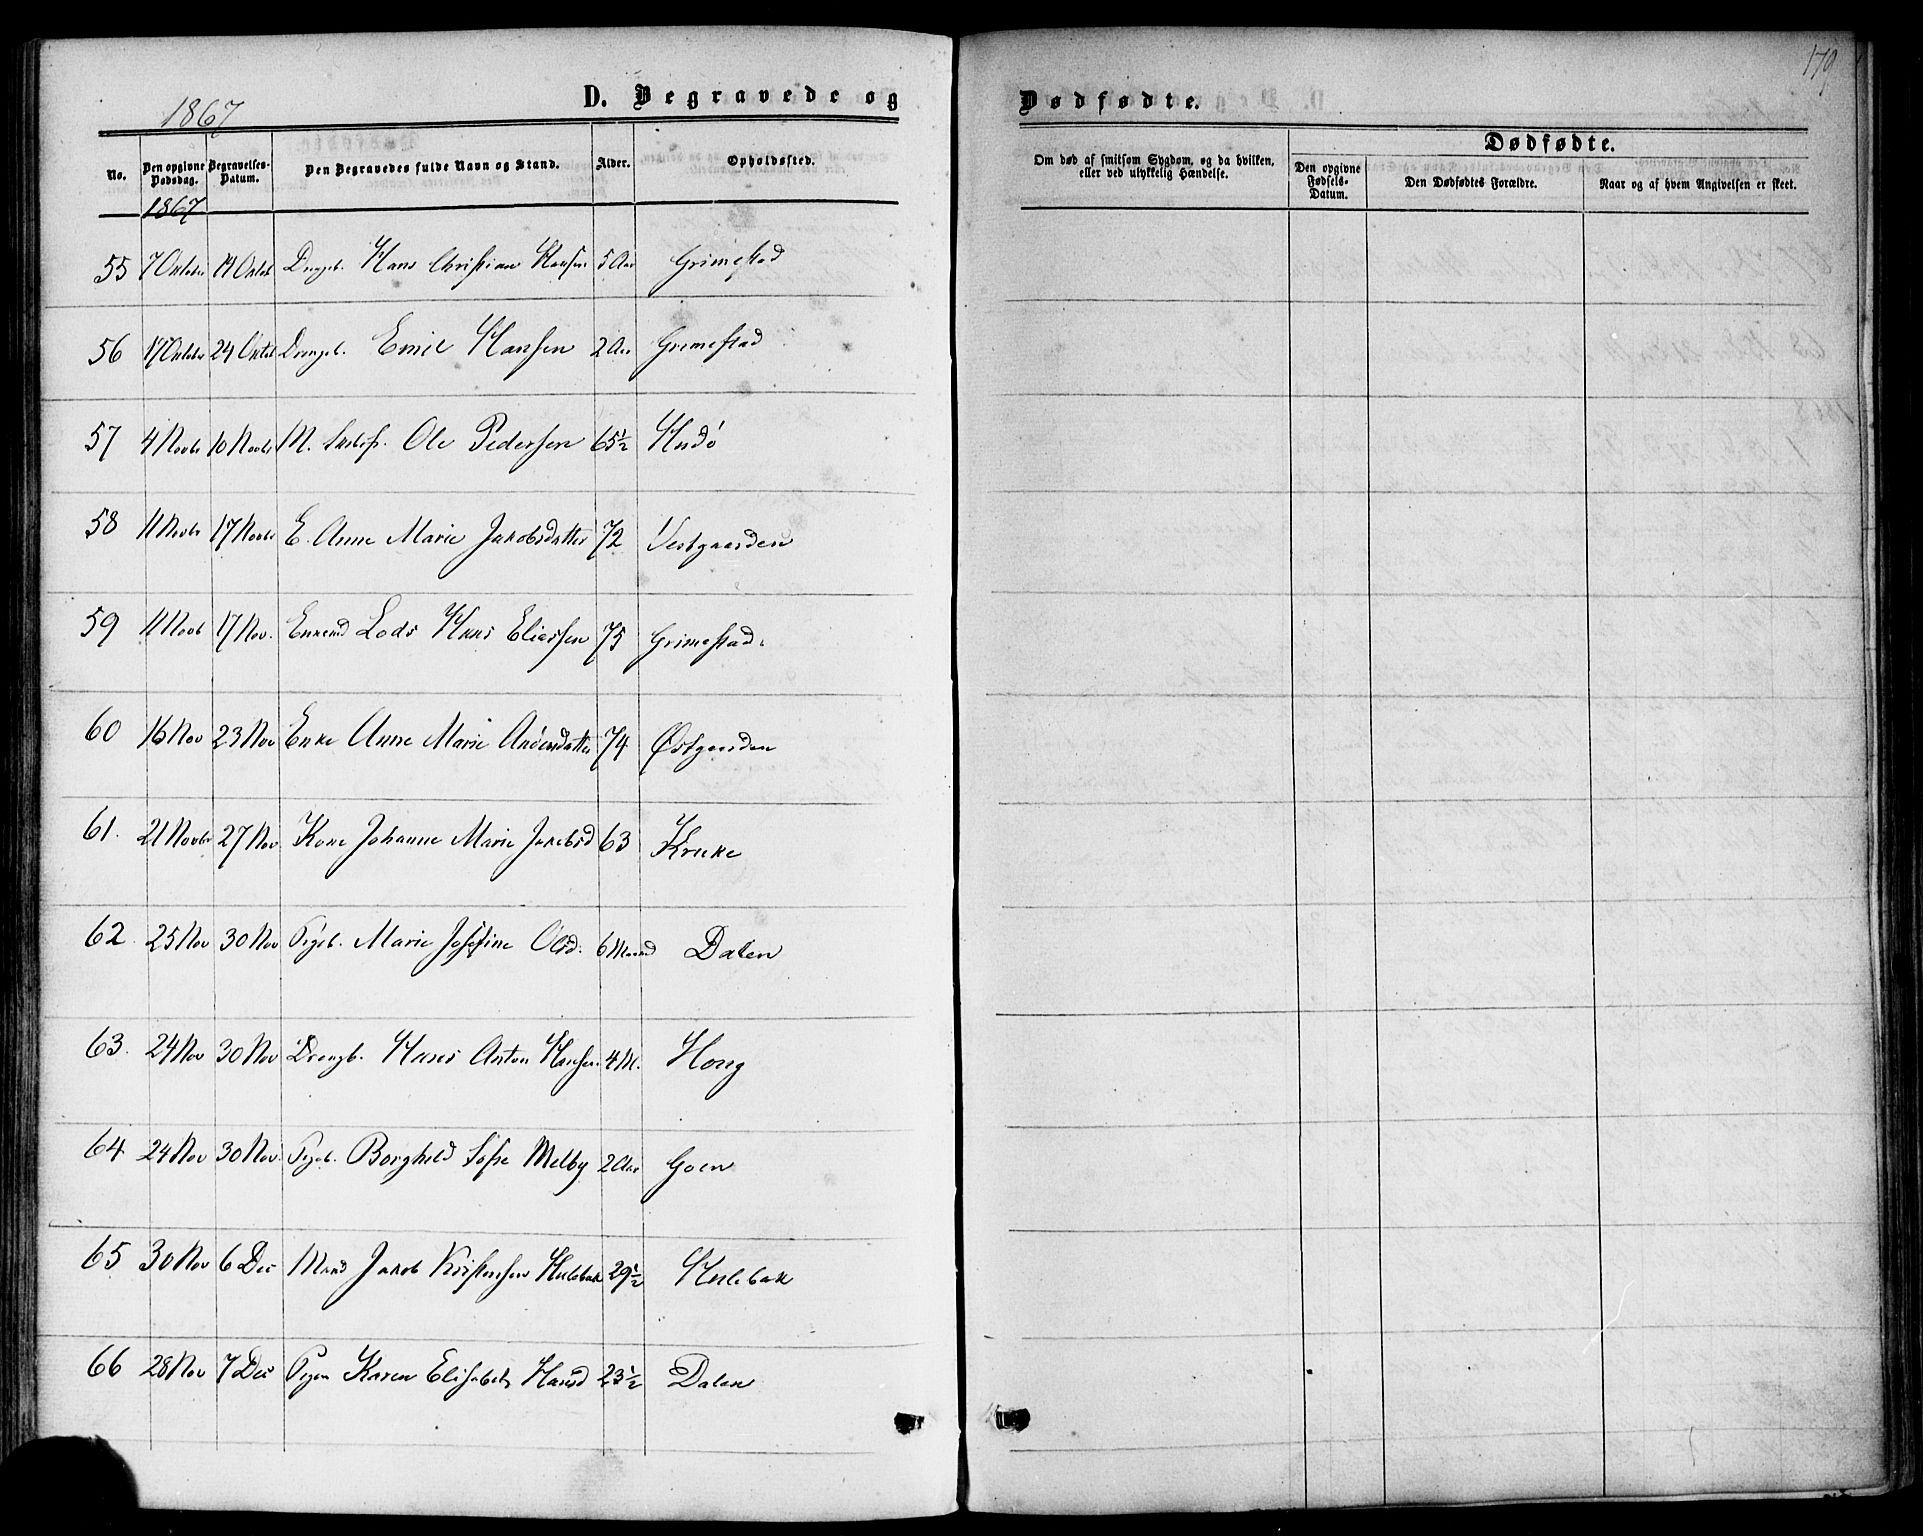 1867
D. Begravede og
No. Den opgivne Dødsdag. Begravelses-Datum. Den Begravedes fulde Navn og Stand. Alder. Opholdssted.
1867
55 7 Oktober 14 Oktob Drengeb. Hans Christian Hansen 5 Aar Grimestad
56 17 Oktober 24 Oktob Drengeb. Emil Hansen 2 Aar Grimestad
57 4 Novbr 10 Novbr M. Ole Pedersen 65½ Hudø
58 11 Novbr 17 Novbr E. Anne Marie Jakobsdatter 72 Vestgaarden
59 11 Novb 17 Nov. Enkemd Lods Hans Eliassen 75 Grimestad.
60 16 Nov 23 Nov Enke Anne Marie Andersdatter 74 Østgaarden
61. 21 Novbr 27 Nov Kone Johanne Marie Jakobsd 63 Kruke
62. 25 Nov 30 Nov Pigeb. Marie Josefine Olsd. 6 Maaned Dalen
63. 24 Nov 30 Nov Drengb. Hans Anton Hansen. 4 M. Hong
64. 24 Nov 30 Nov. Pigeb. Borghild Sofie Melby 2 Aar Goen
65 30 Nov 6 Dec Mand Jakob Kristensen Hulebak 29½ Hulebak
66 28 Nov 7 Dec Pigen Karen Elisabeth Hansd 23½ Dalen
179
Dødfødte.
Om død af smitsom Sygdom, og da hvilken, eller ved ulykkelig Hændelse.
Dødfødte.
Den opgivne Fødsels-Datum. Den Dødfødtes Forældre. Naar og af hvem Angivelsen er skeet.